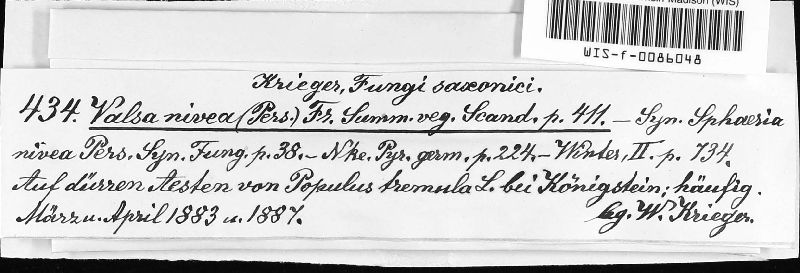 Madison (WIS)
WIS-f-0086048
Krieger, Fungi saxonici.
434. Valsa nivea (Pers.) Fr. Summ. veg. Scand. p. 411. – Syn. Sphaeria
nivea Pers. Syn. Fung. p. 38. – Nke. Pyr. germ. p. 224. – Winter, II. p. 734.
Auf dürren Aesten von Populus tremula L. bei Königstein; häufig.
März u. April 1883 u. 1887.
lg. W. Krieger.